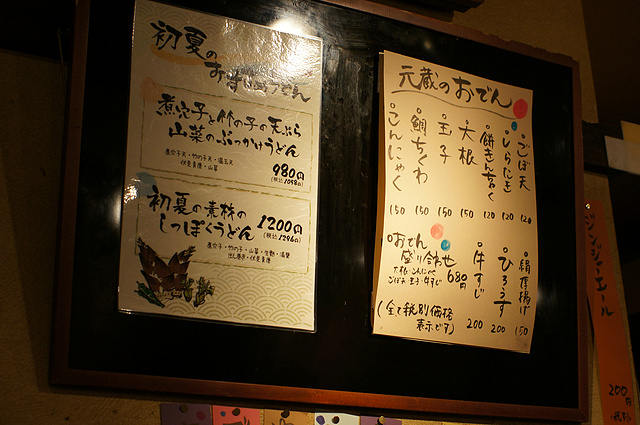 初夏の
おすすめうどん
煮穴子と竹の子の天ぷら
山菜のぶっかけうどん
煮穴子天・竹の子天・温玉天
伏見唐唐・山菜
980円
(税込1058円)
初夏の素材の
しっぽくうどん
1200円
(税込1296円)
煮穴子・竹の子・山菜・生麩・湯葉
出し巻き・伏見唐唐
元蔵のおでん
ごぼ天 120
しらたき 120
餅きんちゃく 120
大根 150
玉子 150
鯛ちくわ 150
こんにゃく 150
絹厚揚げ 150
ひろうす 200
牛すじ 200
おでん
盛り合せ
680円
大根・こんにゃく
ごぼ天・玉子・牛すじ
(全て税別価格
表示です)
ジンジャーエール
200円